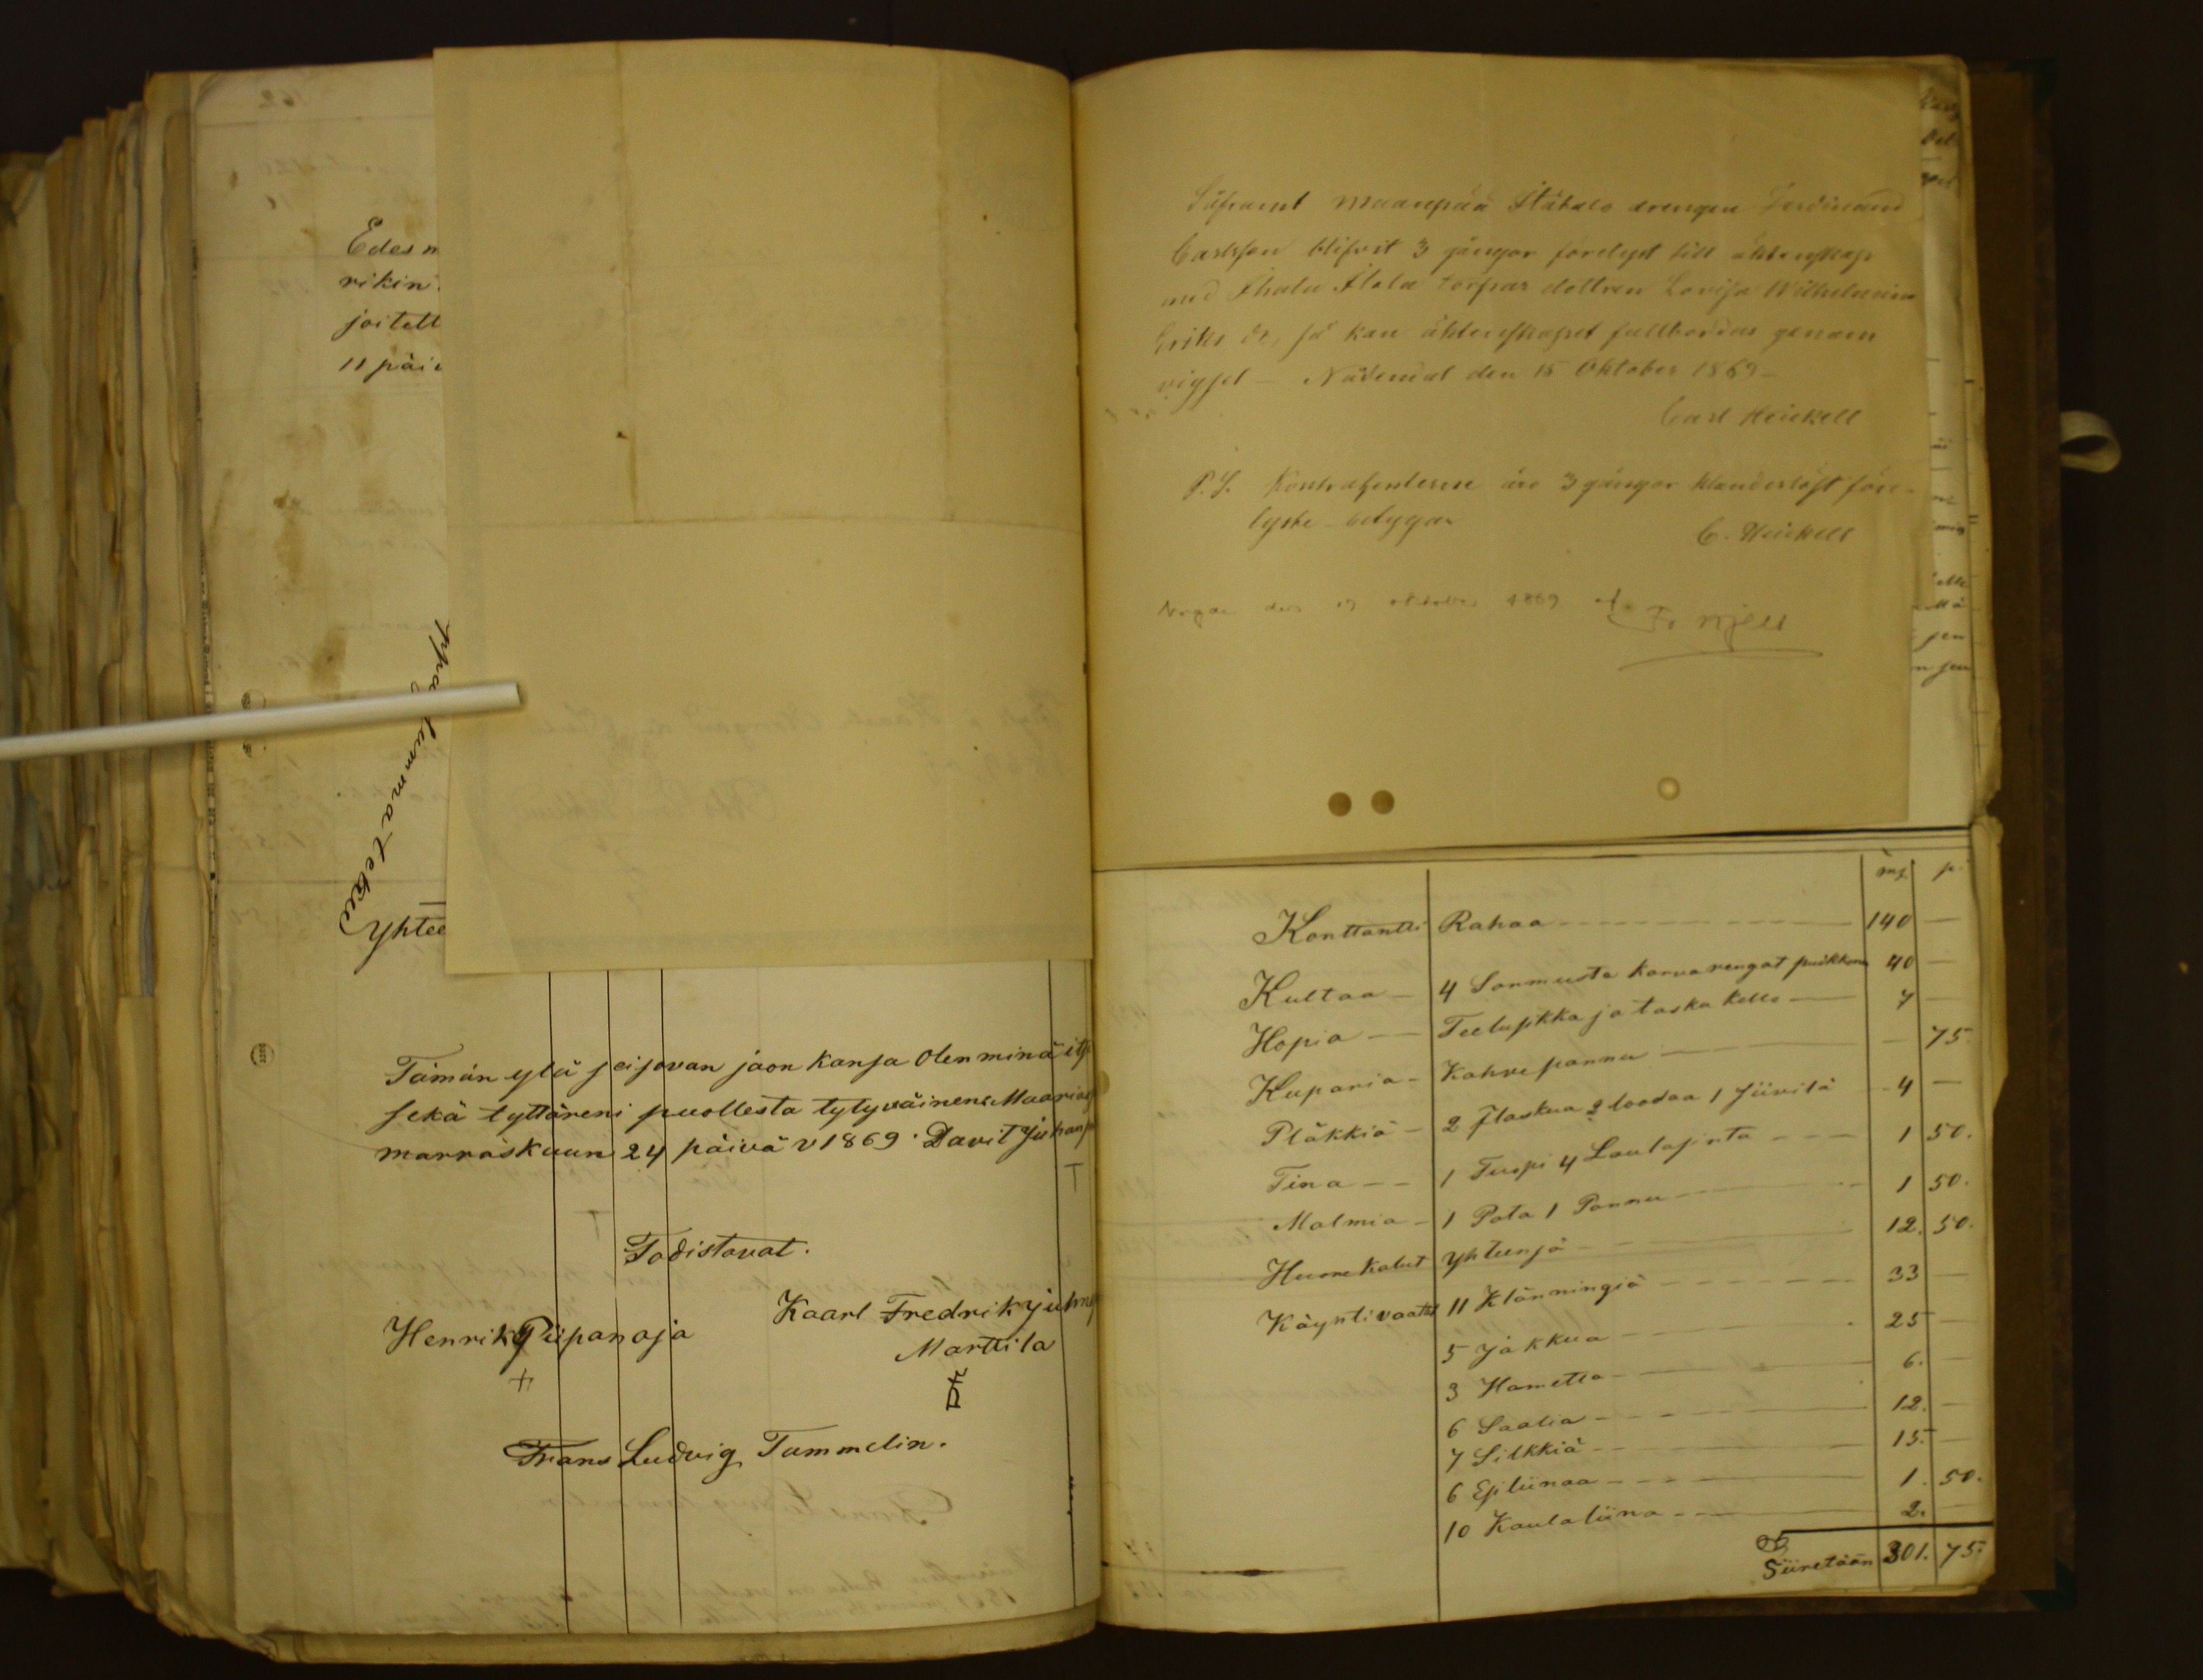 Edesm
rikin
joitett
11 päi
Yhtee
Tämän ylä seisovan jaon kansa Olen minä its
sekä tyttäreni puollesta tytyväinen Maarias
marraskuun 24 päivä v 1869. Davit Juhanp
Todistavat.
Henrik Piipanoja
Kaarl Fredrik Juhnp
Marttila
Frans Ludvig Tammelin.
Såframt Maanpää Itätalo drengen Ferdinand
Carlsson blifvit 3 gångor förelyst till äktenskap
med torpar dottren Lovisa Wilhelmina
Eriks dr, så kan äktenskapet fullbordas genom
vigsel – Nådendal den 15 Oktober 1869 –
Carl Heickell
P.S. Kontrahenterne äro 3 gångor klanderlöst före-
lyste betygar
C. Heickell
den 17 oktober 1869 af
mk p.
Konttantti Rahaa 140 —
Kultaa – 4 Sormusta korvarengat 40 —
Hopia — Teelusikka ja taska kello — 7 —
Kuparia – Kahvepannu — — 75.
Pläkkiä – 2 flaskua 2 loodaa 1 siivilä 4 —
Tina – – 1 Tuopi 4 Laulasinta 1 50.
Malmia – 1 Pata 1 Pannu 1 50.
Huonekalut Yhteensä 12. 50.
Käyntivaatet 11 Klänningiä 33 —
5 Jakkua 25 —
3 Hametta 6. —
6 Saalia 12. —
7 Silkkiä 15. —
6 Esiliinaa 1. 50.
10 Kaulaliina 2. —
Siiretään 301. 75.